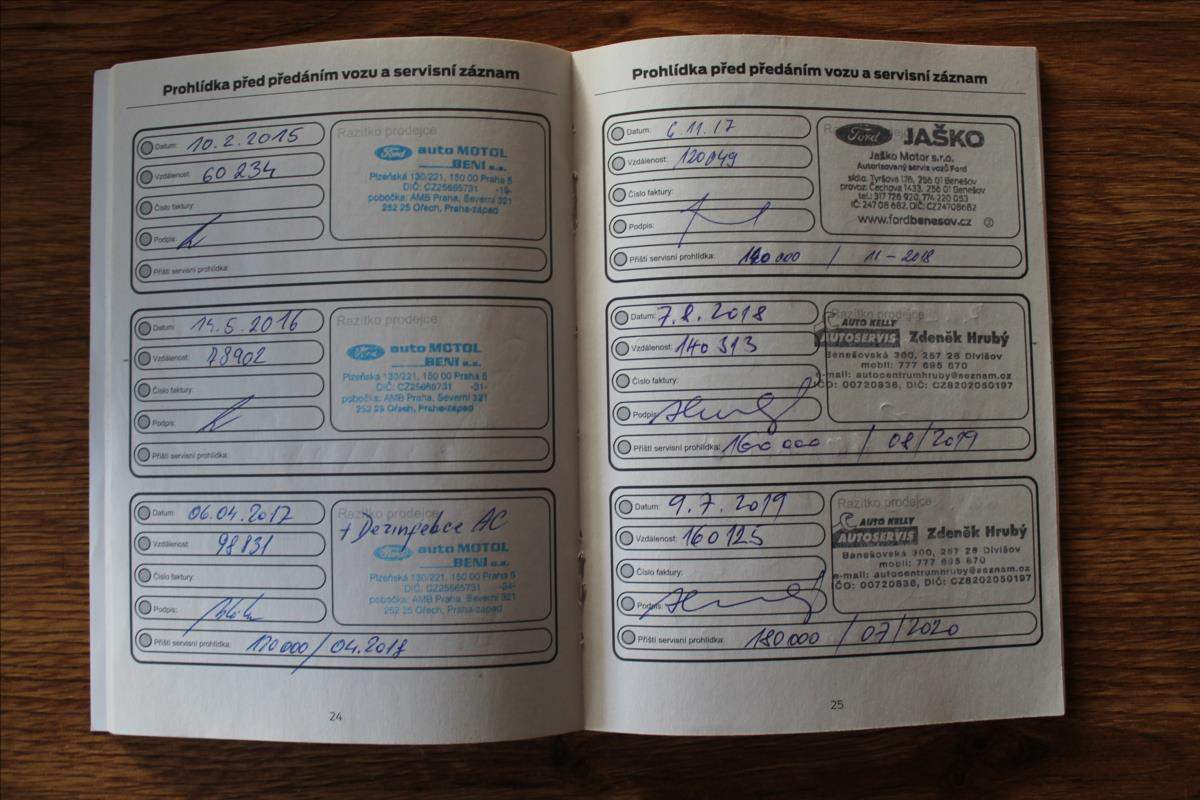 Prohlídka před předáním vozu a servisní záznam
Datum: 10.2.2015
Vzdálenost: 60 234
Číslo faktury:
Podpis:
Příští servisní prohlídka:
Razítko prodejce
Ford auto MOTOL
BENI a.s.
Plzeňská 130/221, 150 00 Praha 5
DIČ: CZ25665731 -19-
pobočka: AMB Praha, Severní 321
252 25 Ořech, Praha-západ
Datum: 14.5.2016
Vzdálenost: 78902
Číslo faktury:
Podpis:
Příští servisní prohlídka:
Razítko prodejce
Ford auto MOTOL
BENI a.s.
Plzeňská 130/221, 150 00 Praha 5
DIČ: CZ25665731 -31-
pobočka: AMB Praha, Severní 321
252 25 Ořech, Praha-západ
Datum: 06.04.2017
Vzdálenost: 98831
Číslo faktury:
Podpis:
Příští servisní prohlídka: 120000/04.2018
Razítko prodejce
+ Dezinfekce AC
Ford auto MOTOL
BENI a.s.
Plzeňská 130/221, 150 00 Praha 5
DIČ: CZ25665731
pobočka: AMB Praha, Severní 321
252 25 Ořech, Praha-západ
24
Prohlídka před předáním vozu a servisní záznam
Datum: 6.11.17
Vzdálenost: 120049
Číslo faktury:
Podpis:
Příští servisní prohlídka: 140 000 / 11-2018
Ford JAŠKO
Jaško Motor s.r.o.
Autorizovaný servis vozů Ford
sídlo: Tyršova 176, 256 01 Benešov
provoz: Čechova 1433, 256 01 Benešov
tel.: 317 726 920, 774 220 053
IČ: 247 08 682, DIČ: CZ24708682
www.fordbenesov.cz
Datum: 7.8.2018
Vzdálenost: 140 313
Číslo faktury:
Podpis:
Příští servisní prohlídka: 160 000 / 08/2019
Razítko prodejce
AUTO KELLY
AUTOSERVIS Zdeněk Hrubý
Benešovská 300, 257 26 Divišov
mobil: 777 695 670
e-mail: autocentrumhruby@seznam.cz
IČO: 00720836, DIČ: CZ8202050197
Datum: 9.7.2019
Vzdálenost: 160125
Číslo faktury:
Podpis:
Příští servisní prohlídka: 180000 / 07/2020
Razítko prodejce
AUTO KELLY
AUTOSERVIS Zdeněk Hrubý
Benešovská 300, 257 26 Divišov
mobil: 777 695 670
e-mail: autocentrumhruby@seznam.cz
IČO: 00720836, DIČ: CZ8202050197
25